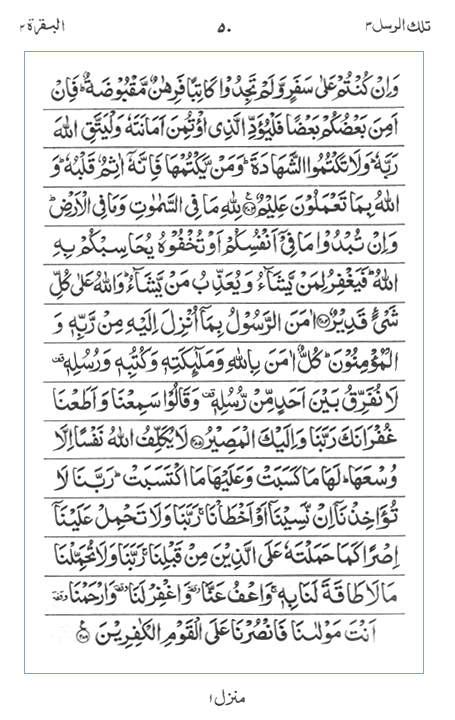 تلك الرسل ٣ ٥٠ البقرة ٢
وَاِنْ كُنْتُمْ عَلٰى سَفَرٍ وَّلَمْ تَجِدُوْا كَاتِبًا فَرِهٰنٌ مَّقْبُوْضَةٌ ؕ فَاِنْ
اَمِنَ بَعْضُكُمْ بَعْضًا فَلْيُؤَدِّ الَّذِى اؤْتُمِنَ اَمَانَتَهٗ وَلْيَتَّقِ اللّٰهَ
رَبَّهٗ ؕ وَلَا تَكْتُمُوا الشَّهَادَةَ ؕ وَمَنْ يَّكْتُمْهَا فَاِنَّهٗۤ اٰثِمٌ قَلْبُهٗ ؕ وَ
اللّٰهُ بِمَا تَعْمَلُوْنَ عَلِيْمٌ ﴿۲۸۳﴾ لِلّٰهِ مَا فِى السَّمٰوٰتِ وَمَا فِى الْاَرْضِ ؕ
وَاِنْ تُبْدُوْا مَا فِىْۤ اَنْفُسِكُمْ اَوْ تُخْفُوْهُ يُحَاسِبْكُمْ بِهِ
اللّٰهُ ؕ فَيَغْفِرُ لِمَنْ يَّشَآءُ وَيُعَذِّبُ مَنْ يَّشَآءُ ؕ وَاللّٰهُ عَلٰى كُلِّ
شَىْءٍ قَدِيْرٌ ﴿۲۸۴﴾ اٰمَنَ الرَّسُوْلُ بِمَاۤ اُنْزِلَ اِلَيْهِ مِنْ رَّبِّهٖ وَ
الْمُؤْمِنُوْنَ ؕ كُلٌّ اٰمَنَ بِاللّٰهِ وَمَلٰٓئِكَتِهٖ وَكُتُبِهٖ وَرُسُلِهٖ قف
لَا نُفَرِّقُ بَيْنَ اَحَدٍ مِّنْ رُّسُلِهٖ قف وَقَالُوْا سَمِعْنَا وَاَطَعْنَا
غُفْرَانَكَ رَبَّنَا وَاِلَيْكَ الْمَصِيْرُ ﴿۲۸۵﴾ لَا يُكَلِّفُ اللّٰهُ نَفْسًا اِلَّا
وُسْعَهَا ؕ لَهَا مَا كَسَبَتْ وَعَلَيْهَا مَا اكْتَسَبَتْ ؕ رَبَّنَا لَا
تُؤَاخِذْنَاۤ اِنْ نَّسِيْنَاۤ اَوْ اَخْطَاْنَا ۚ رَبَّنَا وَلَا تَحْمِلْ عَلَيْنَاۤ
اِصْرًا كَمَا حَمَلْتَهٗ عَلَى الَّذِيْنَ مِنْ قَبْلِنَا ۚ رَبَّنَا وَلَا تُحَمِّلْنَا
مَا لَا طَاقَةَ لَنَا بِهٖ ۚ وَاعْفُ عَنَّا وقفة وَاغْفِرْ لَنَا وقفة وَارْحَمْنَا وقفة
اَنْتَ مَوْلٰىنَا فَانْصُرْنَا عَلَى الْقَوْمِ الْكٰفِرِيْنَ ﴿۲۸۶﴾
منزل ١